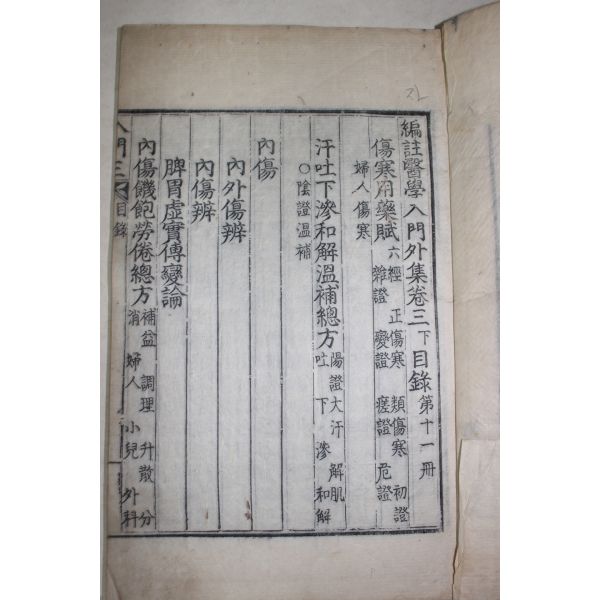 編註醫學入門外集卷三下目錄 第十一冊
傷寒用藥賦 六經 正傷寒 類傷寒 初證 雜證 變證 瘥證 危證
婦人傷寒
汗吐下滲和解溫補總方 陽證大汗 解肌 吐 下 滲 和解
○陰證溫補
內傷
內外傷辨
內傷辨
脾胃虛實傳變論
內傷饑飽勞倦總方 補益 調理 升散 分消 婦人 小兒 外科
入門三 目錄